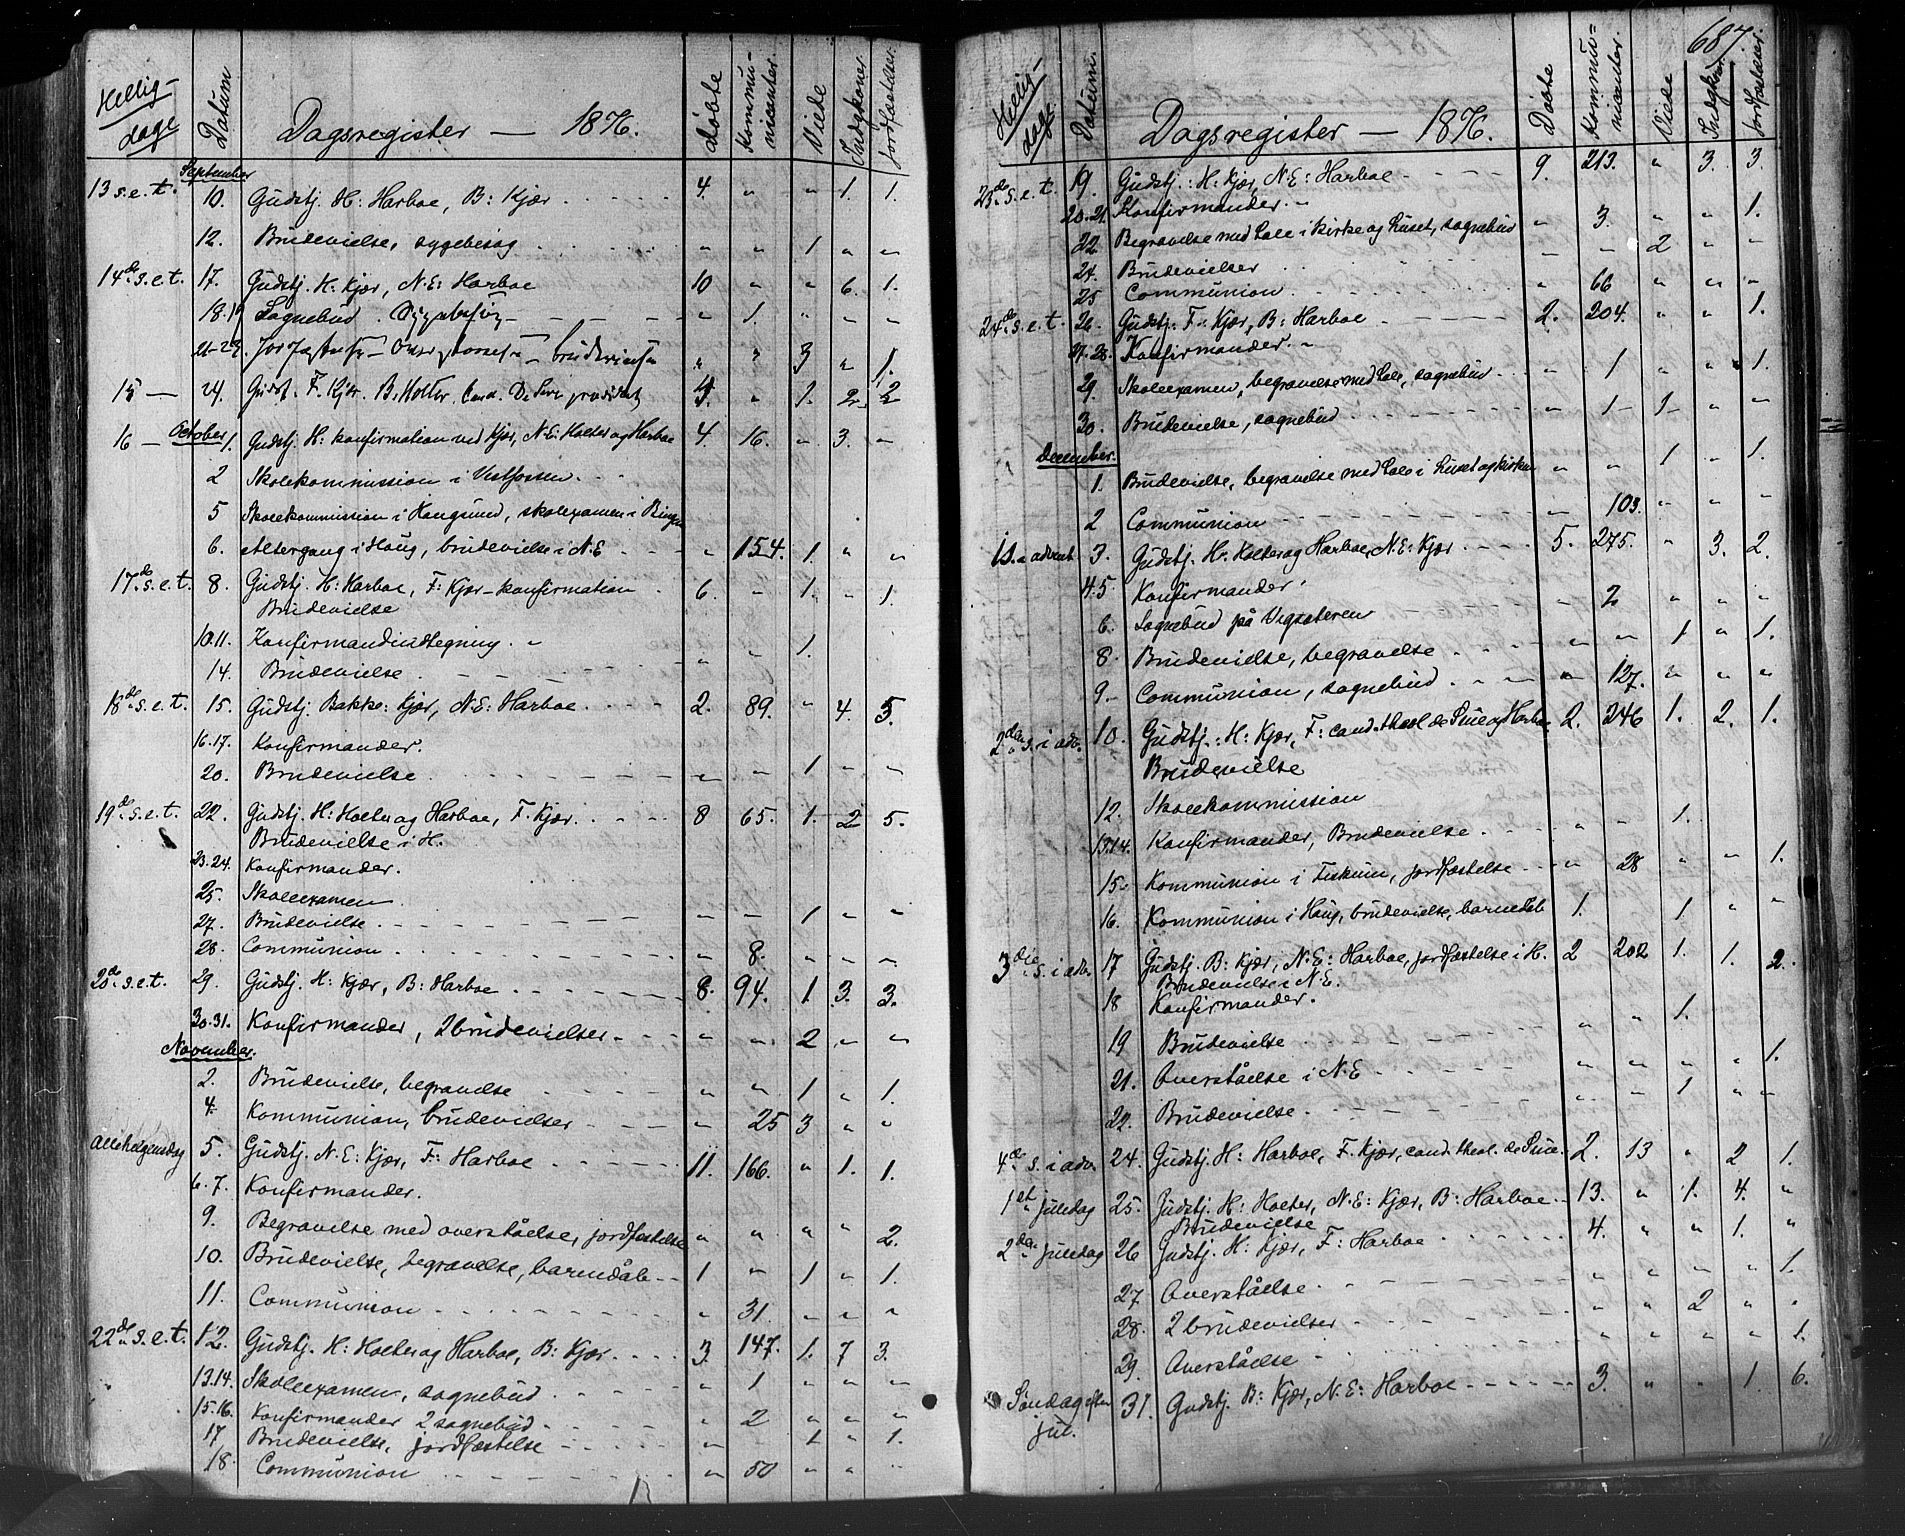 Hellig-
dage Datum Dagsregister — 1876. døbte Kommunikanter Viede Indgkoner Jordfæstelser
September
13 s.e.t. 10. Gudstj. H: Harboe, B: Kjær 4. " " 1. 1.
12. Brudevielse, sygebesøg " " 1 " "
14de s.e.t. 17. Gudstj. H: Kjær, N.E: Harboe 10 " " 6. 1.
18.19 Sognebud. Sygebesøg " 1. " " "
21-23. Jordfæstelse – Overstaaelse – brudevielse " " 3 " 1.
15 — 24. Gudst. F. Kjær. B. Holter. Cand. De Seve prædiket 1. 2. 2
16 — October 1. Gudstj. H: konfirmation ved Kjær, N.E: Holter og Harboe 4. 16. " 3. "
2 Skolekommission i Vestfossen.
5 Skolekommission i Hougsund, skolexamen i Bingen
6. Altergang i Houg, brudevielse i N.E " 154. 1. " "
17de s.e.t. 8. Gudstj. H: Harboe, F: Kjær – konfirmation 6. " 1. " 1.
Brudevielse
10.11. Konfirmandindtegning. "
14. Brudevielse. " " 1.
18de s.e.t. 15. Gudstj. Bakke: Kjær, N.E: Harboe 2. 89. " 4. 5.
16.17. Konfirmander.
20. Brudevielse " " 1 " "
19de s.e.t. 22. Gudstj. H: Holter og Harboe, F. Kjær. 8 65. 1. 2 5.
Brudevielse i H.
23.24. Konfirmander.
25. Skoleexamen
27. Brudevielse " " 1 " "
28. Communion " 8. " " "
20de s.e.t. 29. Gudstj. H: Kjær, B: Harboe 8. 94. 1. 3. 3.
30.31. Konfirmander, 2 brudevielser " " 2 " "
November.
2. Brudevielse, begravelse " " 1 " 1.
4. Kommunion, brudevielser " 25 3 " "
Allehelgensdag 5. Gudstj. N.E: Kjær, F: Harboe 11. 166. " 1. 1.
6.7. Konfirmander.
9. Begravelse med overståelse, jordfæstelse " " " " 2.
10. Brudevielse, begravelse, barnedåb 1 " 1 " 1.
11. Communion " 31. " " "
22de s.e.t. 12. Gudstj. H: Holter og Harboe, B: Kjær. 3. 147. 1. 7 3.
13.14. Skoleexamen, sognebud " 1 " " "
15.16. Konfirmander 2 sognebud " 2 " " "
17 Brudevielse, jordfæstelse " 1 " 1.
18. Communion " 50 " " "
687.
Hellig-
dage Datum. Dagsregister — 1876. Døbte Kommunikanter Viede Indgkoner Jordfæstelser.
23de s.e.t. 19. Gudstj.: H: Kjær, N.E: Harboe 9. 213. " 3. 3.
20.21. Konfirmander. "
22. Begravelse med tale i kirke og huset, sognebud " 3. " " 1.
24. Brudevielser " " 2 " "
25 Communion " 66 " " "
24de s.e.t. 26. Gudstj. F: Kjær, B: Harboe 2. 204. " " 1.
27.28. Konfirmander. "
29. Skoleexamen, begravelse med tale, sognebud 1 " " 1.
30. Brudevielse, sognebud " 1 1 " "
December.
1. Brudevielse, begravelse med tale i huset og kirken " " 1 " 1.
2 Communion " 103. " " "
1 s. i advent 3. Gudstj. H: Holter og Harboe, N.E: Kjær 5. 275. " 3. 2.
4.5 Konfirmander
6. Sognebud på Vegsateren " 2 " " "
8. Brudevielse, begravelse " " 1 " 1.
9. Communion, sognebud " 127. " " "
2den s. i adv. 10. Gudstj.: H: Kjær, F: cand. theol de Seue og Harboe 2. 246 1. 2. 1.
Brudevielse
12. Skolekommission
13.14. Konfirmander, Brudevielse " " 1.
15. Kommunion i Fiskum, jordfæstelse " 28 " " 1.
16. Kommunion i Houg, brudevielse, barnedåb 1. 1 " "
3die s. i adv. 17 Gudstj. B: Kjær, N.E: Harboe, jordfæstelse i H. 2 202 1. 1. 2.
Brudevielse i N.E.
18 Konfirmander.
19 Brudevielse " " 1.
21. Overståelse i N.E " " " " 1.
22. Brudevielse " " 1 " "
4de s. i adv. 24. Gudstj. H: Harboe, F. Kjær, cand. theol. de Seue. 2. 13 " 2 1.
1ste juledag 25. Gudstj. H: Holter, N.E: Kjær, B: Harboe 13. " 1. 4. "
Brudevielse
2den juledag 26 Gudstj. H: Kjær, F: Harboe 4. " " 1. "
27. Overståelse " " " " 1.
28. 2 brudevielser " " 2 " "
29. Overståelse " " " " 1.
Søndag efter jul. 31. Gudstj. B: Kjær, N.E: Harboe 3. " " 1 6.